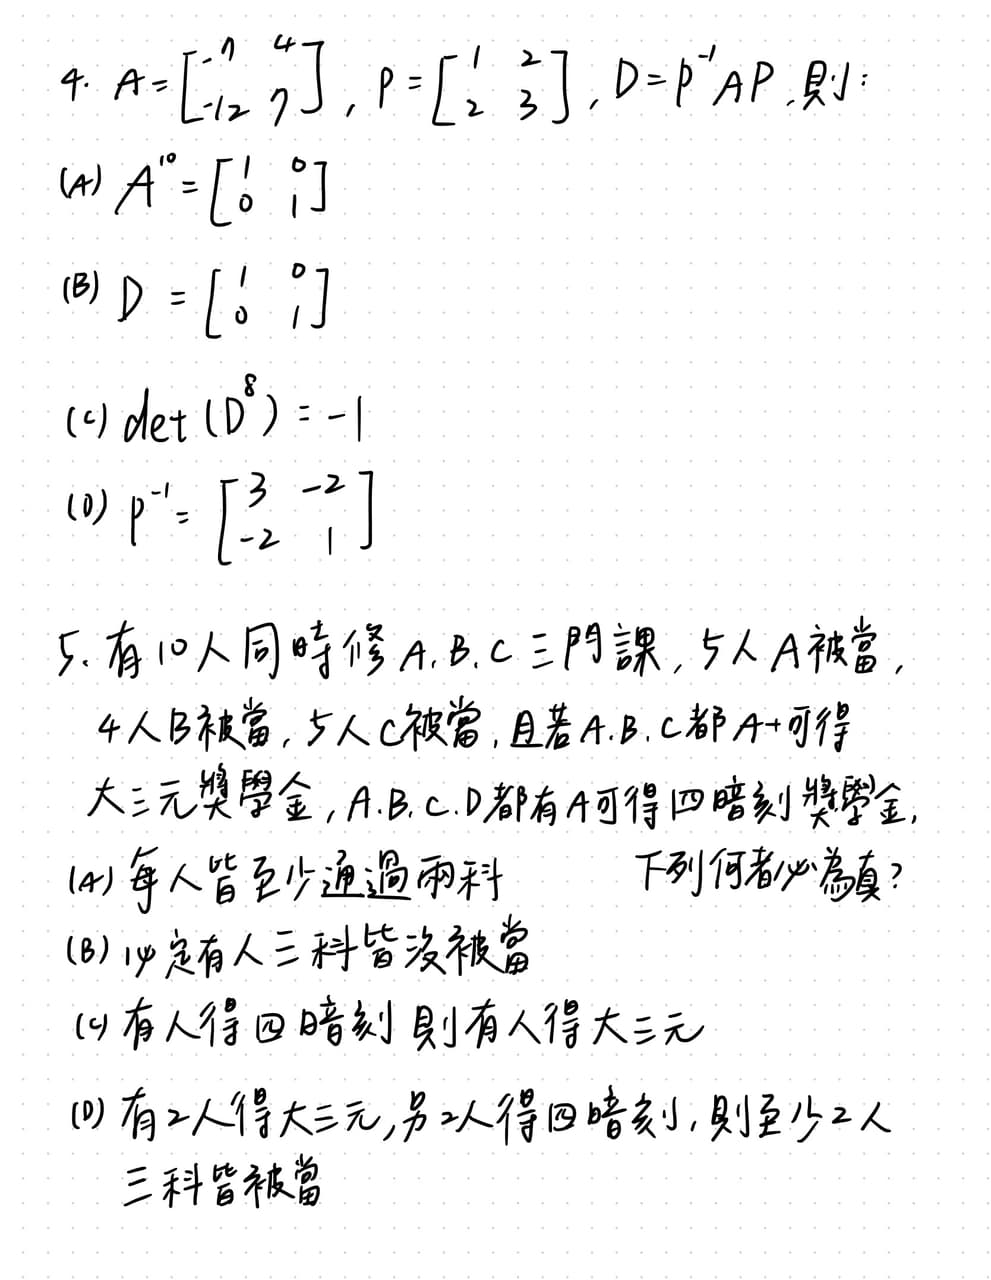 4. A=[-7 4 -12 7], P=[1 2 2 3], D=P⁻¹AP, 則:
(A) A¹⁰=[1 0 0 1]
(B) D=[1 0 0 1]
(C) det(D⁸)=-1
(D) P⁻¹=[3 -2 -2 1]
5. 有10人同時修A.B.C三門課, 5人A被當,
4人B被當, 5人C被當, 且若A.B.C都A+可得
大三元獎學金, A.B.C.D都有A可得四暗刻獎學金,
下列何者必為真?
(A) 每人皆至少通過兩科
(B) 必定有人三科皆沒被當
(C) 有人得四暗刻則有人得大三元
(D) 有2人得大三元, 另2人得四暗刻, 則至少2人
三科皆被當